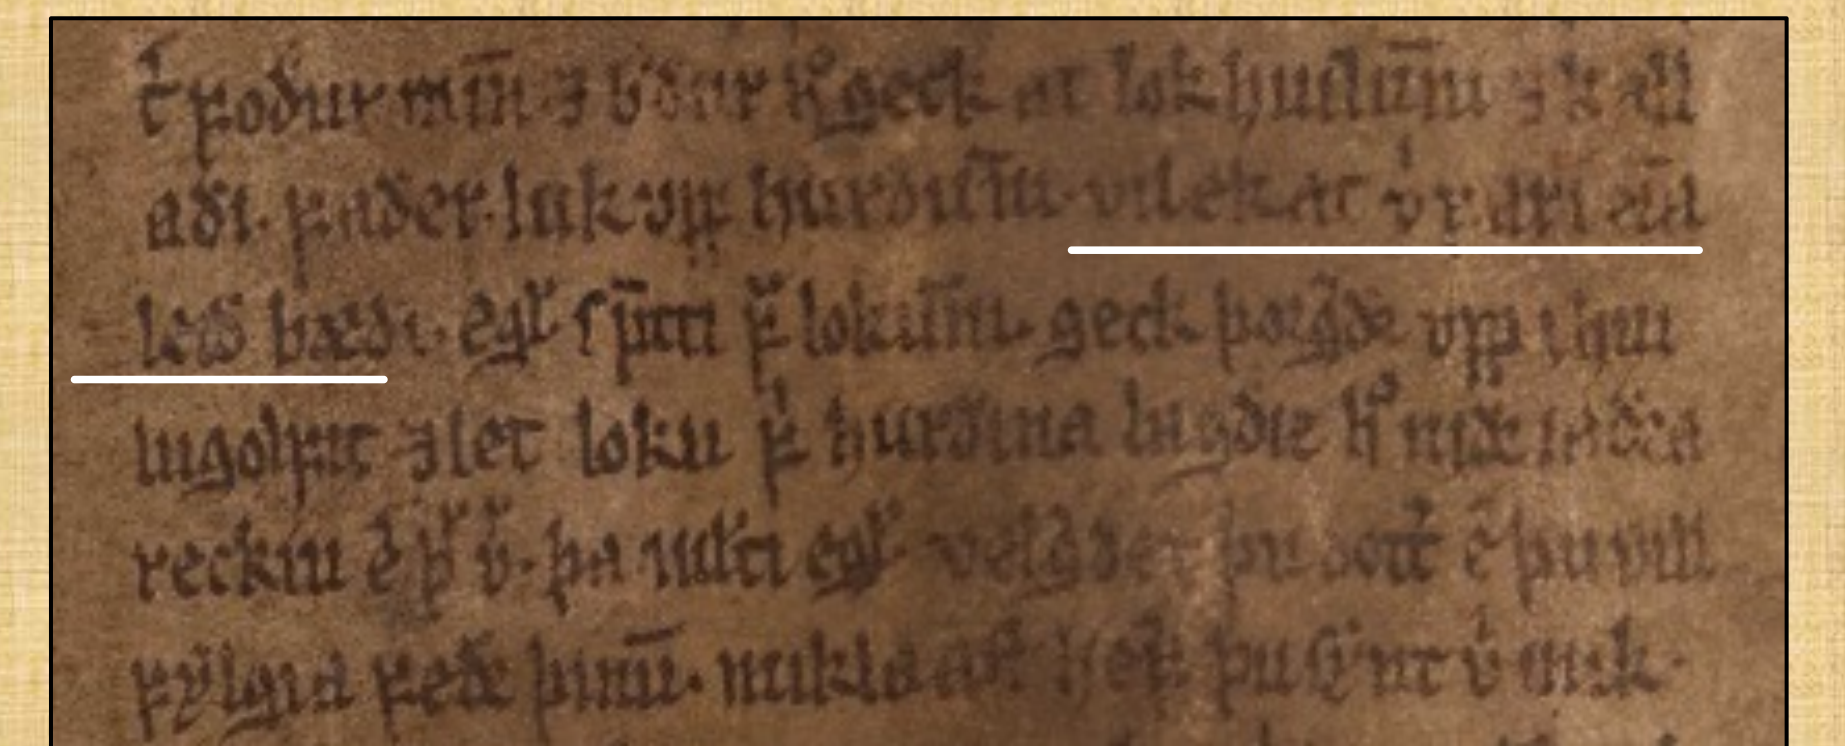 t̄ fodur mín ⁊ b͛dur hͦ geck at lokhuilūni ⁊ k̄all
adi. fader luk upp hurdin̄i vil ek at v͛ fari eina
leid bædi. egꝉ sp̄tti f͛ lokun̄i. geck þorg͛dr upp i huı
lugolfit ⁊ let loku f͛ hurdina lagdiz hͦ nidr i adra
reckiu ē þ͛ v͛. þa mꝉti egꝉ vel g͛der þu dott͛ ē þu vill
fylgia fedr þinū. mikla ast hef͛ þu synt v͛ mik.